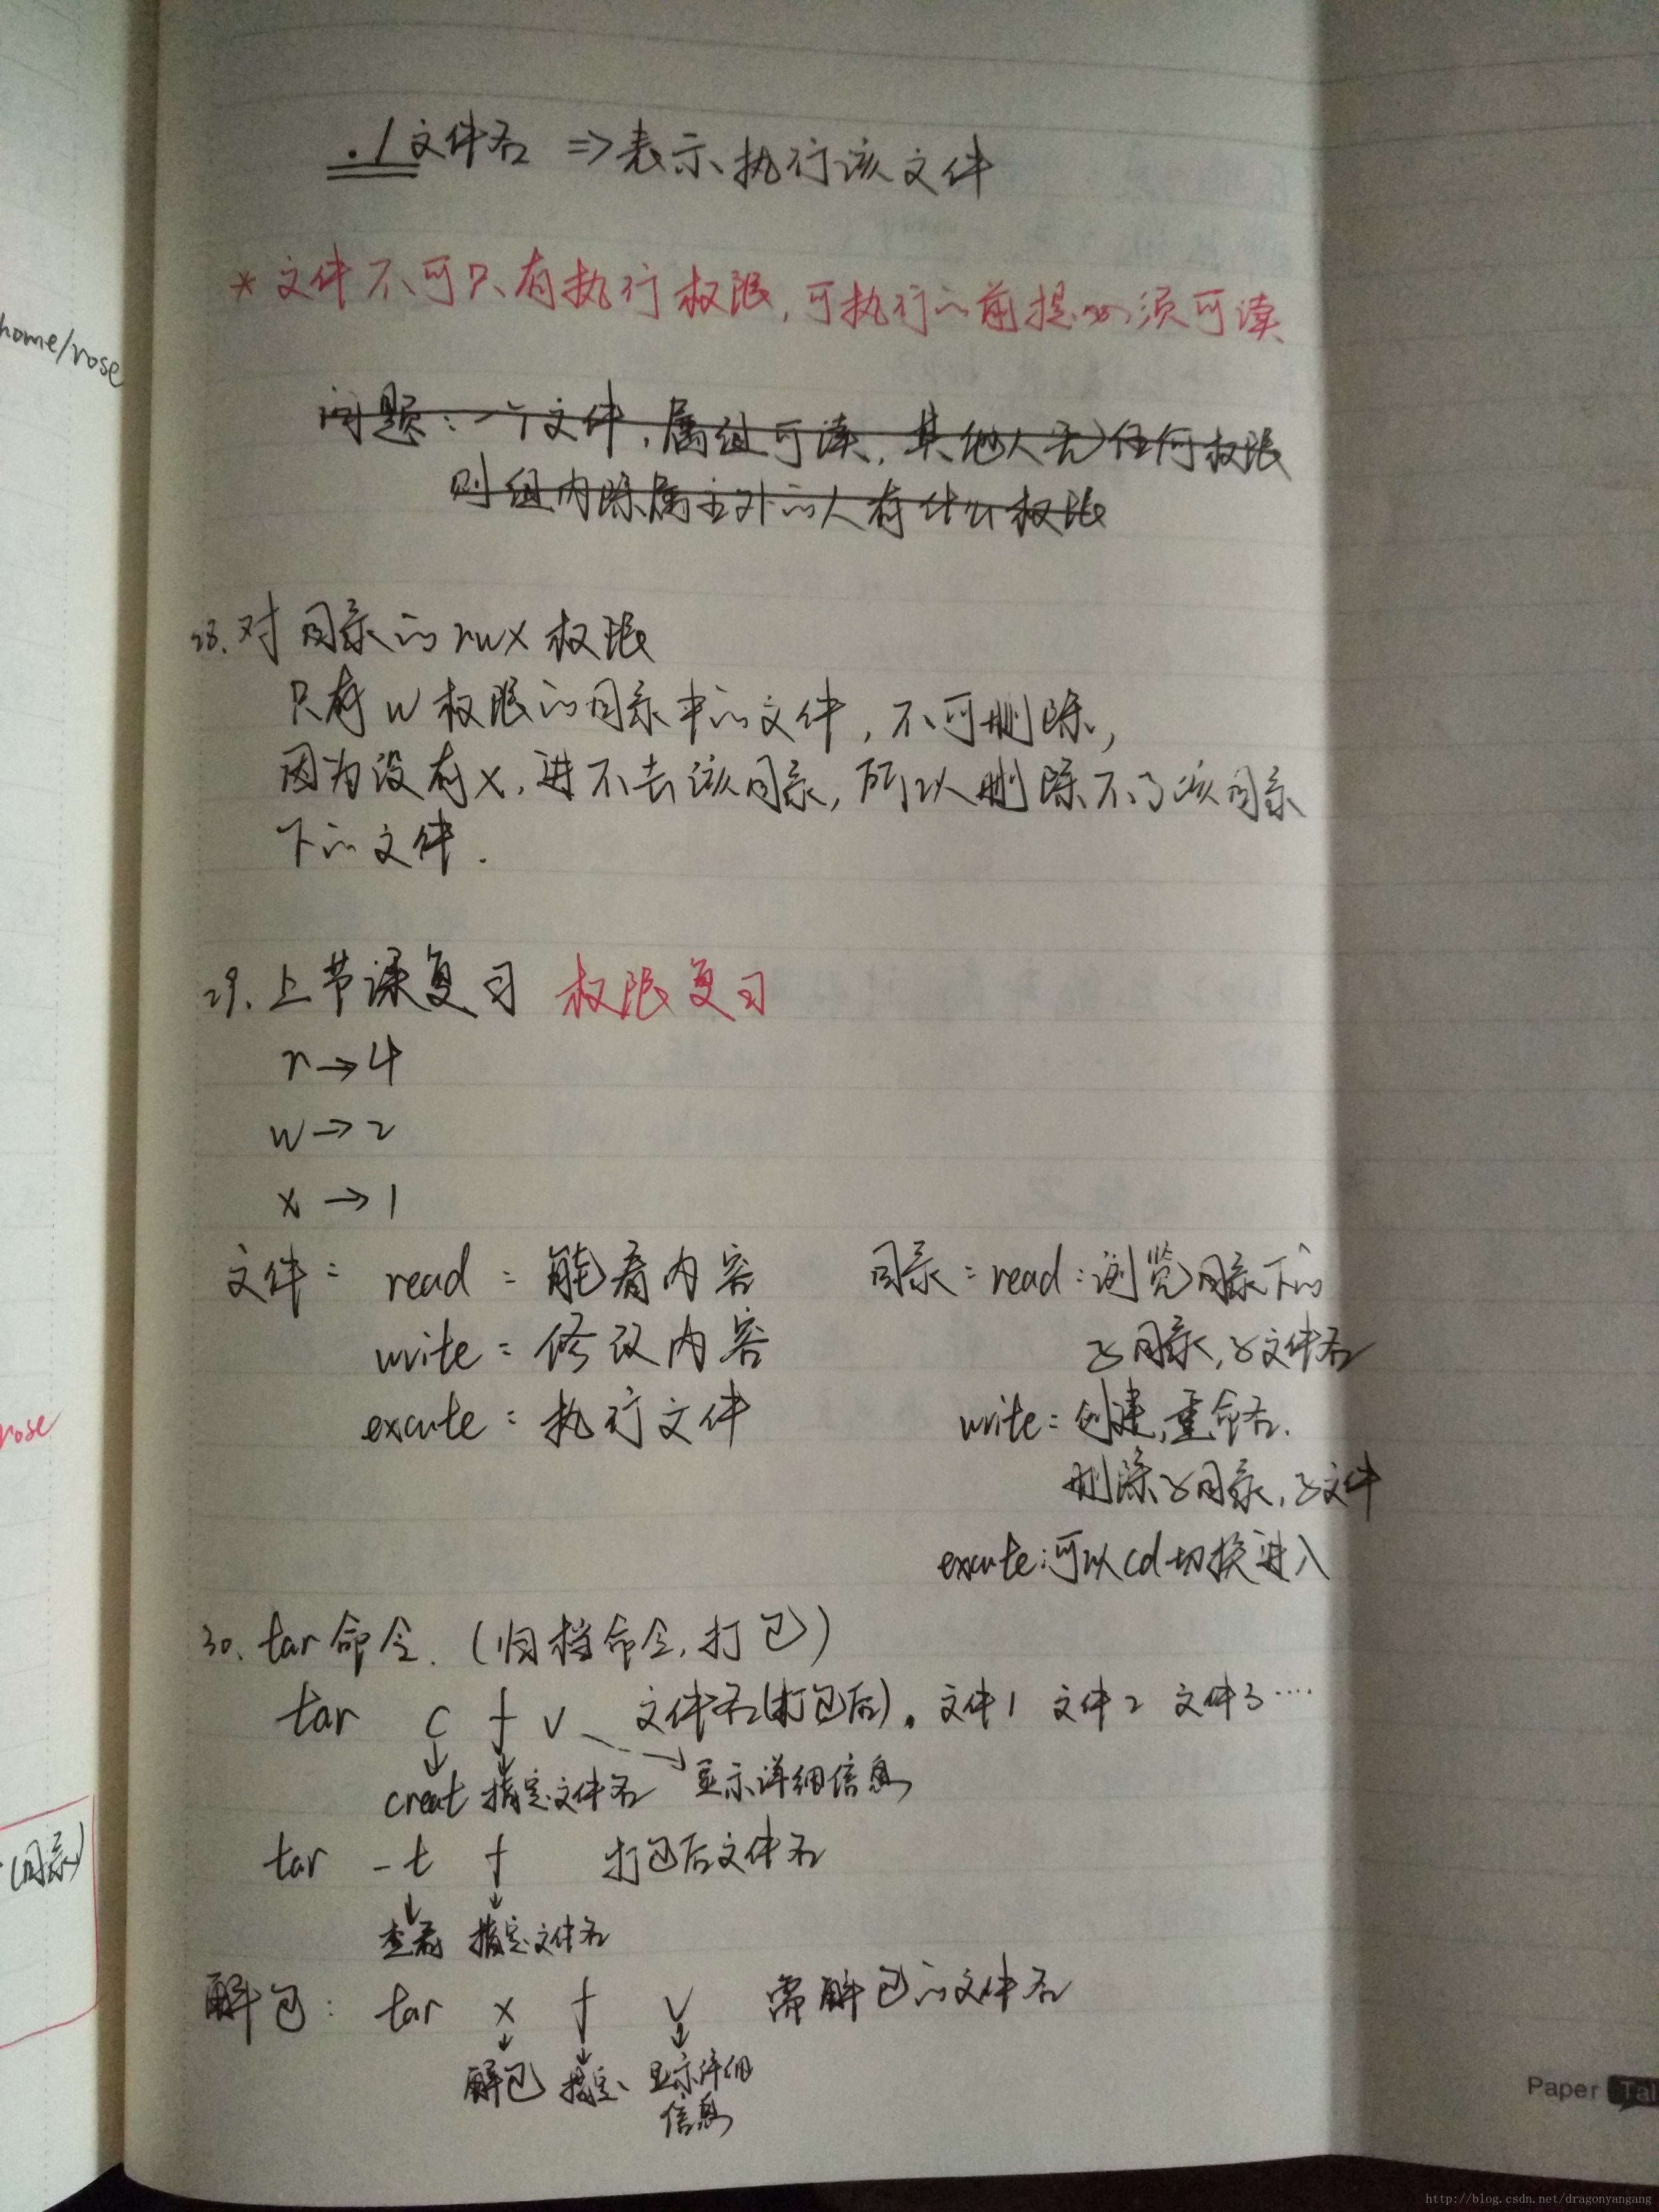 ./文件名 => 表示执行该文件
* 文件不可只有执行权限,可执行的前提必须可读
home/rose
问题:一个文件,属组可读,其他人无任何权限
则组内除属主外的人有什么权限
28.对目录的rwx权限
只有w权限的目录中的文件,不可删除,
因为没有x,进不去该目录,所以删除不了该目录
下的文件.
29.上节课复习 权限复习
r→4
w→2
x→1
文件: read: 能看内容
write: 修改内容
excute: 执行文件
目录: read: 浏览目录下的
子目录,子文件名
write: 创建,重命名.
删除子目录,子文件
excute: 可以cd切换进入
rose
30.tar命令.(归档命令,打包)
tar c f v 文件名(打包后). 文件1 文件2 文件3 ····
creat 指定文件名 显示详细信息
tar -t f 打包后文件名
查看 指定文件名
(目录)
解包: tar x f v 需解包的文件名
解包 指定 显示详细
信息
Paper Tal
http://blog.csdn.net/dragonyangang